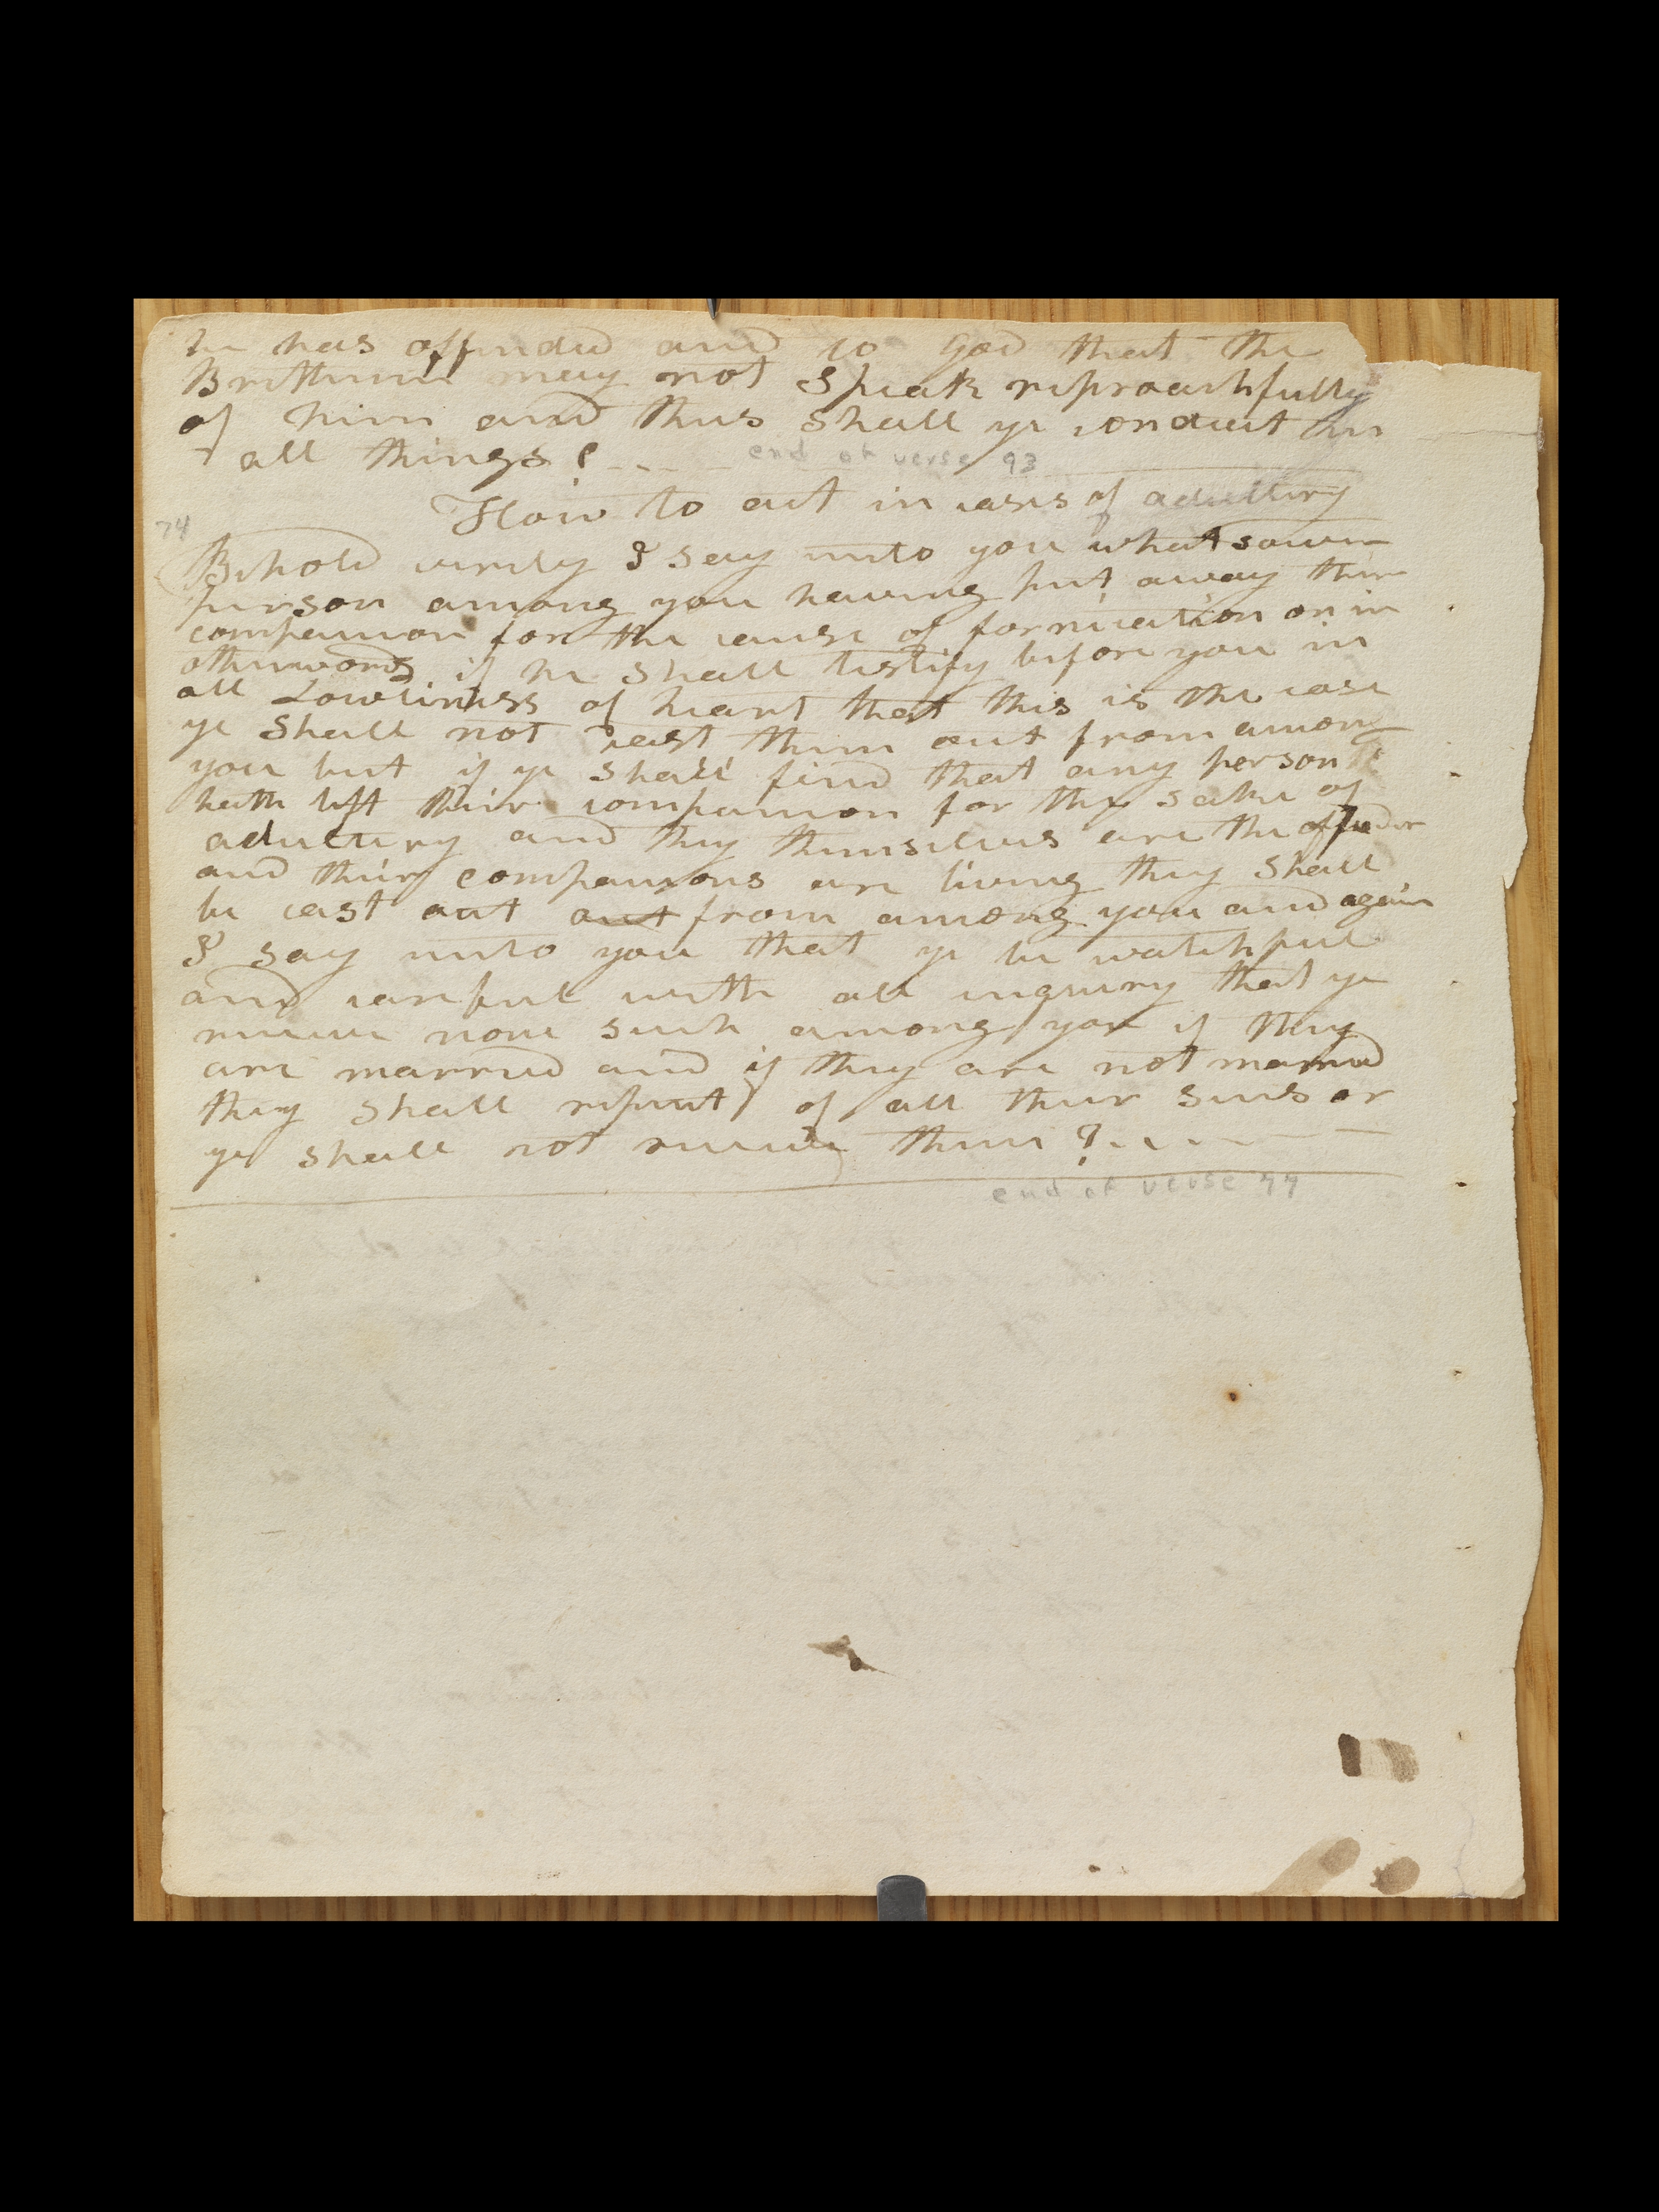 he has offended and to god that the
Britheren may not Speak reproachfully
of him and thus shall ye conduct in
all things?
end of verse 93
How to act in cases of adultery
74
Behold verily I say unto you whatsoever
person among you having put away their
companion for the cause of fornication or in
otherwords if he shall testify before you in
all Lowliness of heart that this is the case
ye shall not cast them out from among
you but if ye shall find that any person
hath left their companion for the sake of
adultery and they themselves are the offender
and their companions are living they shall
be cast out out from among you and again
I say unto you that ye be watchful
and careful with all inquiry that ye
receive none such among you if they
are married and if they are not married
they shall repent of all their sins or
ye shall not receive them?
end of verse 77